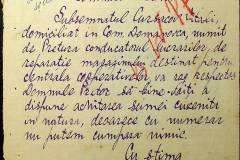 Subsemnatul Cursaru Vitali,
domiciliat in Com. Domanovca, numit
de Pretura conducatorul lucrarilor, de
reparatie magazinului destinat pentru
centrala cooperativelor Va rog respectos
Domnule Pretor să bine-voiti a
dispune achitarea sumei cuvenite
in natura, deoarece cu numerar
nu putem cumpara nimic.
Cu stima